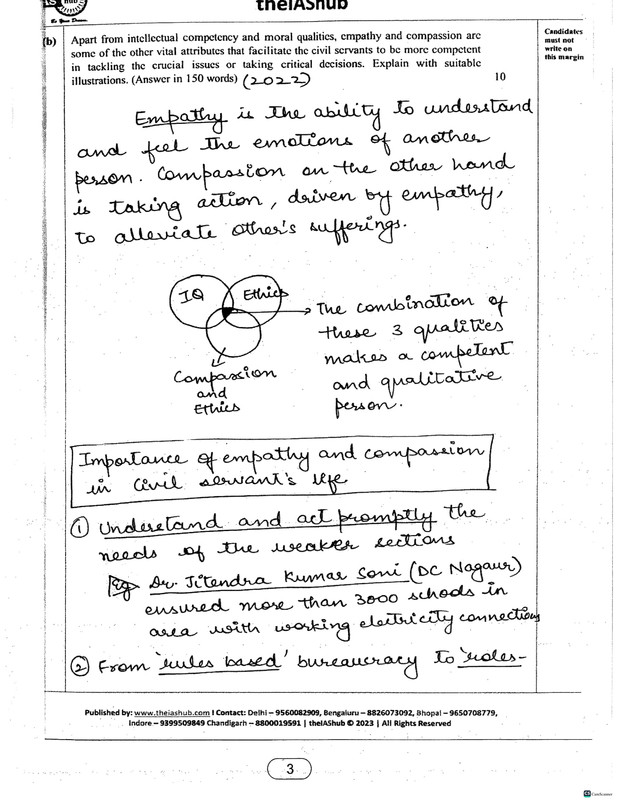 theIAShub
Be Your Dream.
(b) Apart from intellectual competency and moral qualities, empathy and compassion are
some of the other vital attributes that facilitate the civil servants to be more competent
in tackling the crucial issues or taking critical decisions. Explain with suitable
illustrations. (Answer in 150 words) (2022) 10
Candidates
must not
write on
this margin
Empathy is the ability to understand
and feel the emotions of another
person. Compassion on the other hand
is taking action, driven by empathy,
to alleviate other's sufferings.
IQ Ethics
Compassion
and
Ethics
The combination of
these 3 qualities
makes a competent
and qualitative
person.
Importance of empathy and compassion
in civil servant's life
① Understand and act promptly the
needs of the weaker sections
Eg Dr. Jitendra Kumar Soni (DC Nagaur)
ensured more than 3000 schools in
area with working electricity connections
② From 'rules based' bureaucracy to 'roles-
Published by: www.theiashub.com I Contact: Delhi – 9560082909, Bengaluru – 8826073092, Bhopal – 9650708779,
Indore – 9399509849 Chandigarh – 8800019591 | theIAShub © 2023 | All Rights Reserved
3
CamScanner